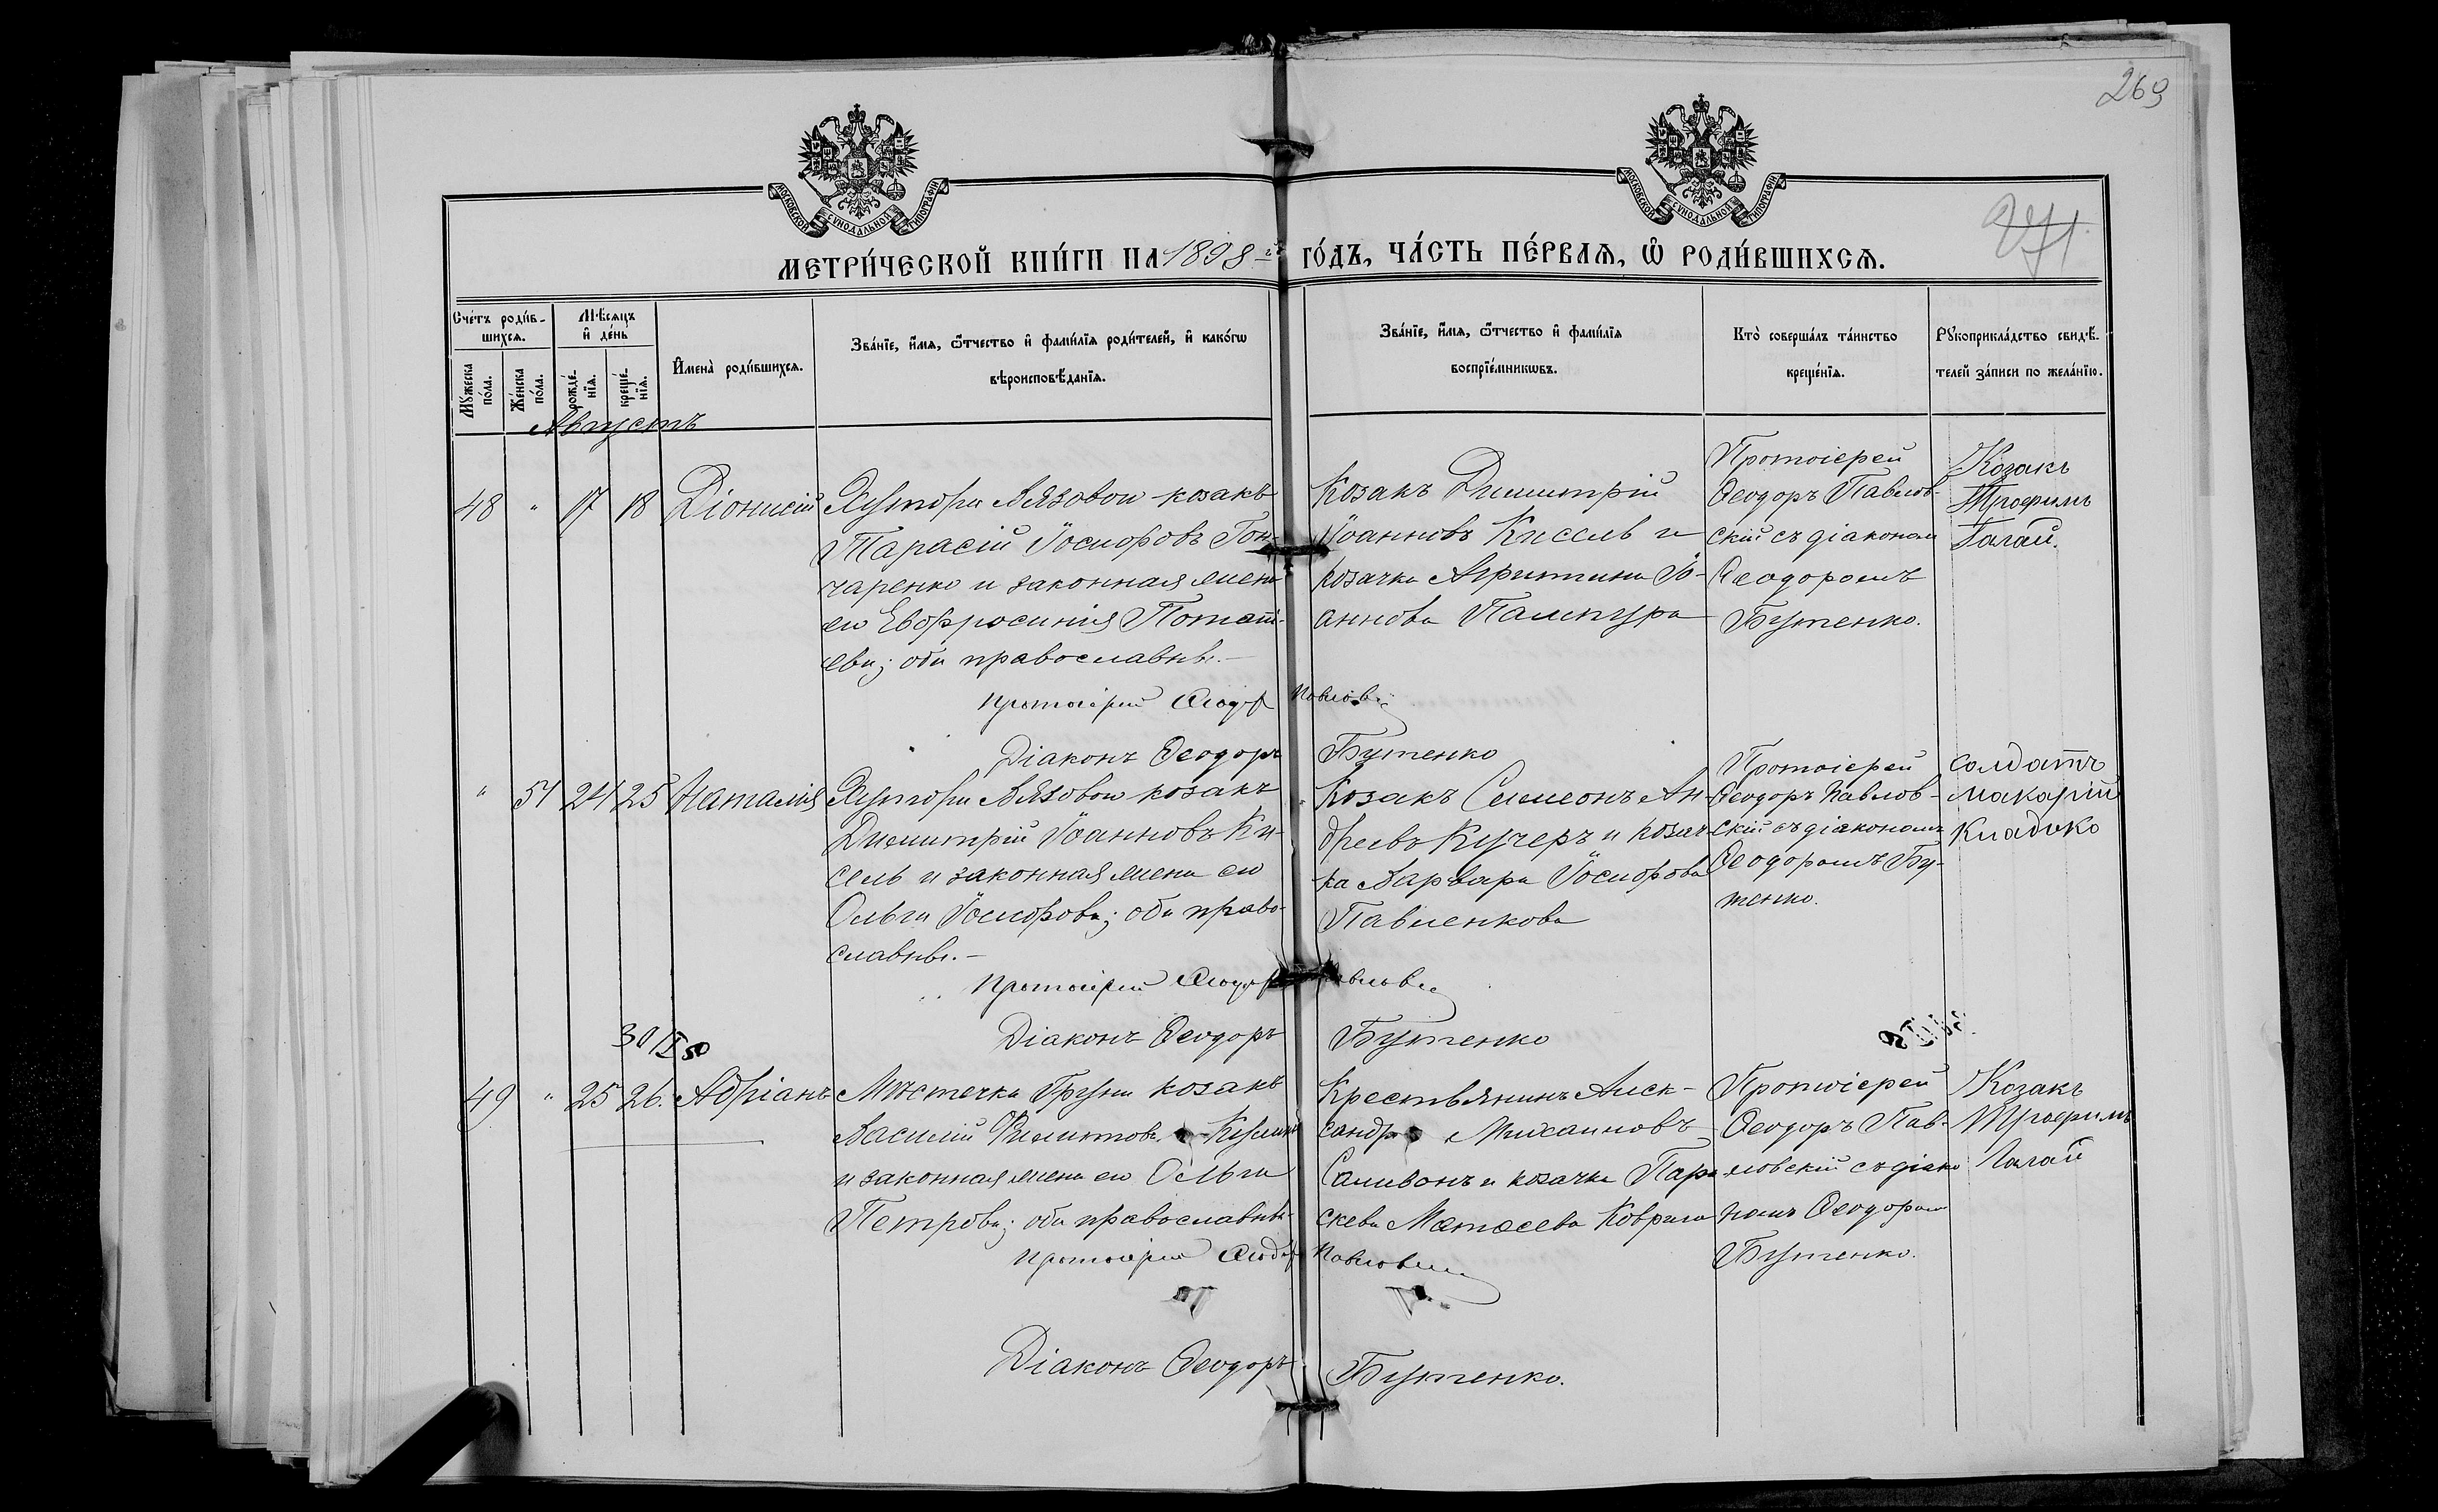 269
271
МОСКОВСКОЙ СУНОДАЛЬНОЙ ТИПОГРАФІИ
МОСКОВСКОЙ СУНОДАЛЬНОЙ ТИПОГРАФІИ
МЕТРИ́ЧЕСКОЙ КНИ́ГИ НА 1898 й ГО́ДЪ, ЧА́СТЬ ПЕ́РВАѦ, Ѡ҆ РОДИ́ВШИХСѦ.
Сче́тъ роди́в-
шихсѧ.
Мѹ́жеска
по́ла.
Же́нска
по́ла.
Мѣ́сѧцъ
и҆ де́нь
рожде́-
нїѧ.
креще́-
нїѧ.
И҆мена̀ роди́вшихсѧ.
Зва́нїе, и҆́мѧ, ѻ҆́тчество и҆ фами́лїѧ роди́телей, и҆ како́гѡ
вѣроисповѣ́данїѧ.
Зва́нїе, и҆́мѧ, ѻ҆́тчество и҆ фами́лїѧ
воспрїе́мникѡвъ.
Кто̀ соверша́лъ та́инство
креще́нїѧ.
Рѹкоприкла́дство свидѣ́-
телей за́писи по жела́нїю.
Августъ
48 " 17 18 Діонисій
Хутора Вязовои козакъ
Тарасій Іосифовъ Гон-
чаренко и законная жена
его Евфросинія Потапі-
ева; оба православны.—
Козакъ Димитрій
Іоанновъ Кисель и
козачка Агрипина Іо-
аннова Паллтура
Протоіерей
Ѳеодоръ Павлов-
скій съ діакономъ
Ѳеодоромъ
Бутенко.
Козакъ
Трофимъ
Галай.
Протоіерей Ѳеодор Павловскій
Діаконъ Ѳеодоръ Бутенко
" 51 24 25 Наталія
Хутора Вязовои козакъ
Димитрій Іоанновъ Ки-
сель и законная жена его
Ольга Іосифова; оба право-
славны.—
Козакъ Симеонъ Ан-
дреевъ Кучеръ и козач-
ка Варвара Іосифова
Павленкова
Протоіерей
Ѳеодоръ Павлов-
скій съ діакономъ
Ѳеодоромъ Бу-
тенко.
солдатъ
макарій
Кладико
Протоіерей Ѳеодор Павловскій
Діаконъ Ѳеодоръ Бутенко
30/I 50
49 " 25 26. Адріанъ
Мѣстечка Груни козакъ
Василій Филиповъ
и законная жена его Ольга
Петрова; оба православны
Крестьянинъ Алек-
сандръ Михаиловъ
Саливонъ и козачка Пара-
скева Матѳеева Коврига
Протоіерей
Ѳеодоръ Пав-
ловскій съ діако-
номъ Ѳеодоромъ
Бутенко.
Козакъ
Трофимъ
Галай
Протоіерей Ѳеодор Павловскій
Діаконъ Ѳеодоръ Бутенко.